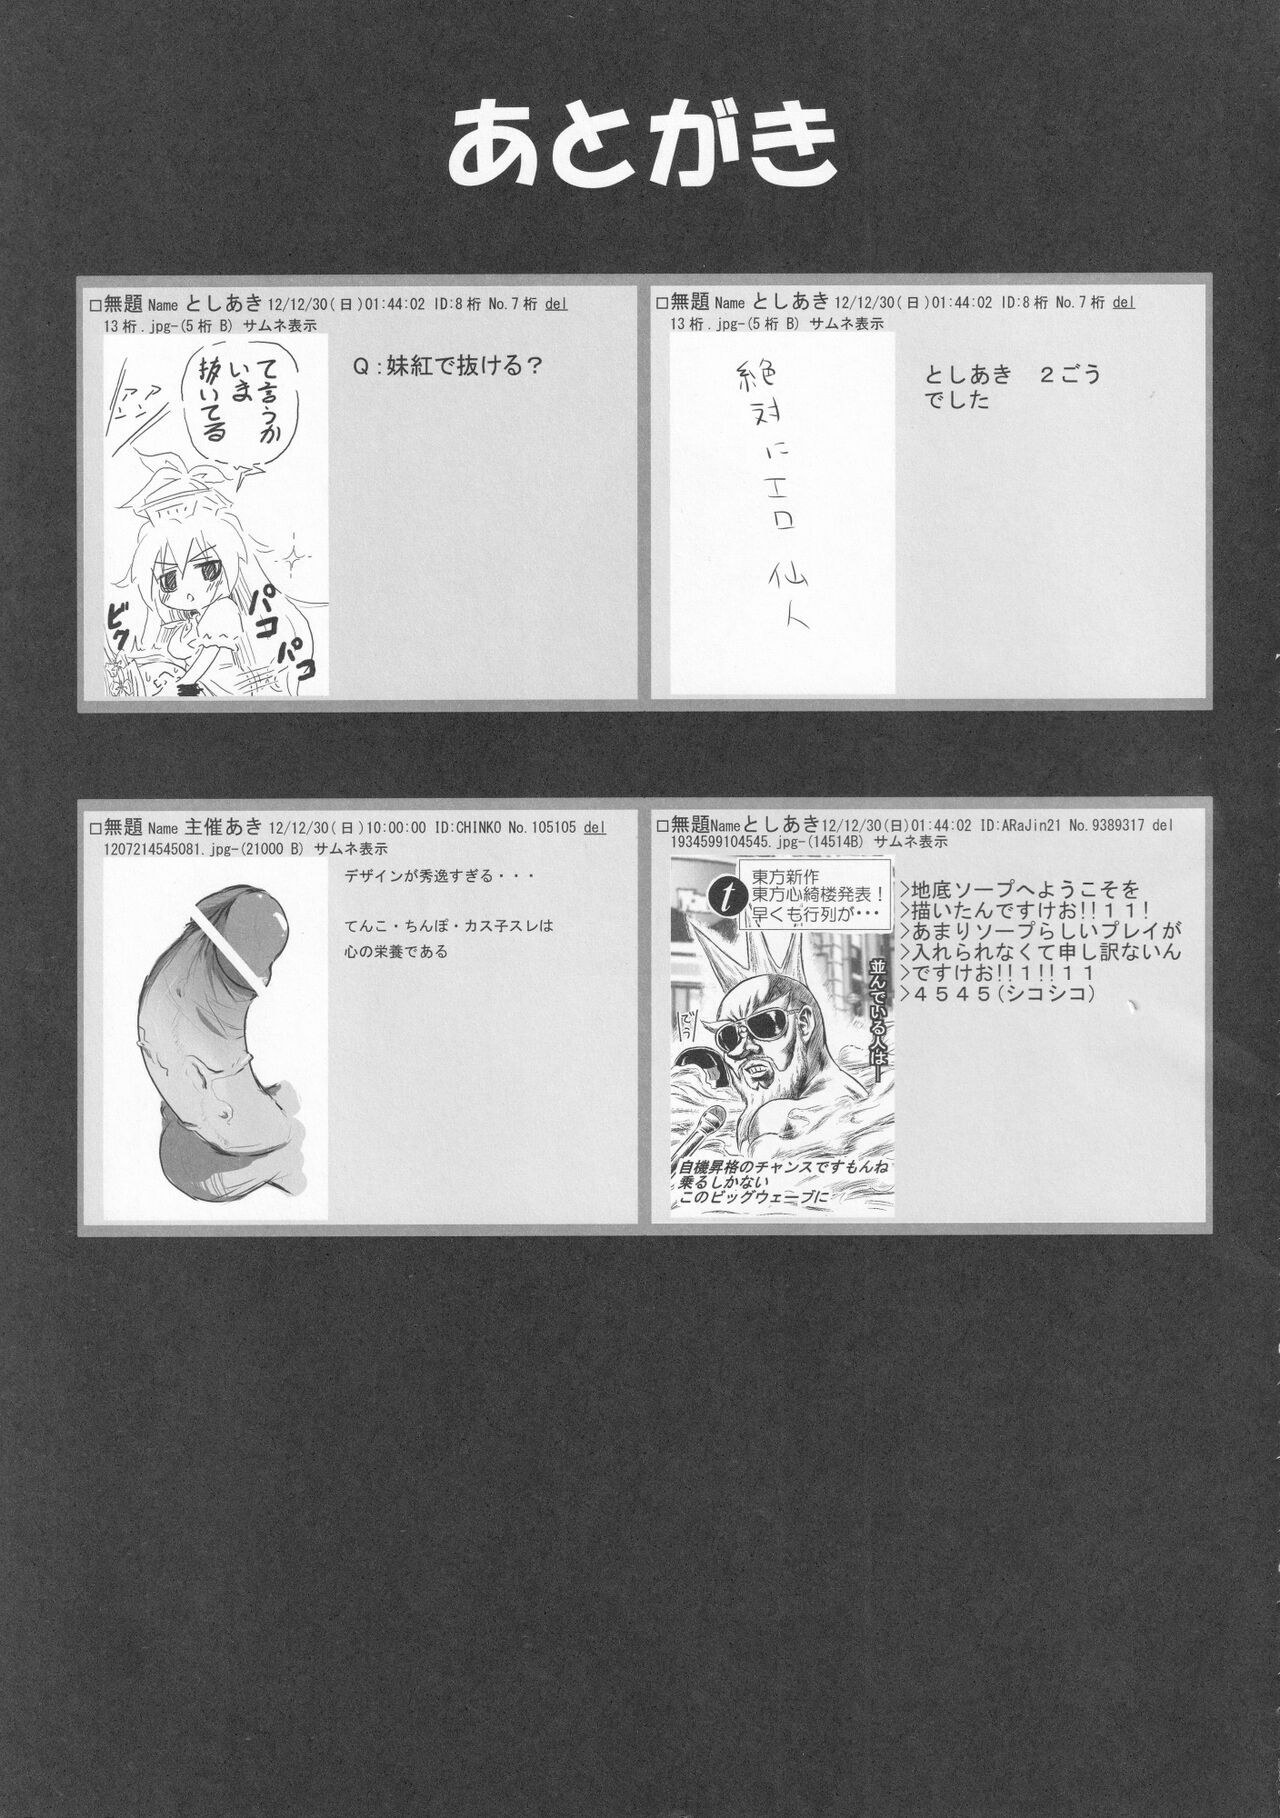 あとがき
□無題 Name としあき 12/12/30(日)01:44:02 ID:8桁 No.7桁 del
13桁.jpg-(5桁 B) サムネ表示
て言うか
いま
抜いてる
アン
アン
ビク
パコ
パコ
Q:妹紅で抜ける?
□無題 Name としあき 12/12/30(日)01:44:02 ID:8桁 No.7桁 del
13桁.jpg-(5桁 B) サムネ表示
絶対にエロ仙人
としあき 2ごう
でした
□無題 Name 主催あき 12/12/30(日)10:00:00 ID:CHINKO No.105105 del
1207214545081.jpg-(21000 B) サムネ表示
デザインが秀逸すぎる・・・
てんこ・ちんぽ・カス子スレは
心の栄養である
□無題Nameとしあき12/12/30(日)01:44:02 ID:ARaJin21 No.9389317 del
1934599104545.jpg-(14514B) サムネ表示
t
東方新作
東方心綺楼発表!
早くも行列が・・・
並んでいる人はー
でう
自機昇格のチャンスですもんね
乗るしかない
このビッグウェーブに
>地底ソープへようこそを
>描いたんですけお!!11!
>あまりソープらしいプレイが
>入れられなくて申し訳ないん
>ですけお!!1!!11
>4545(シコシコ)